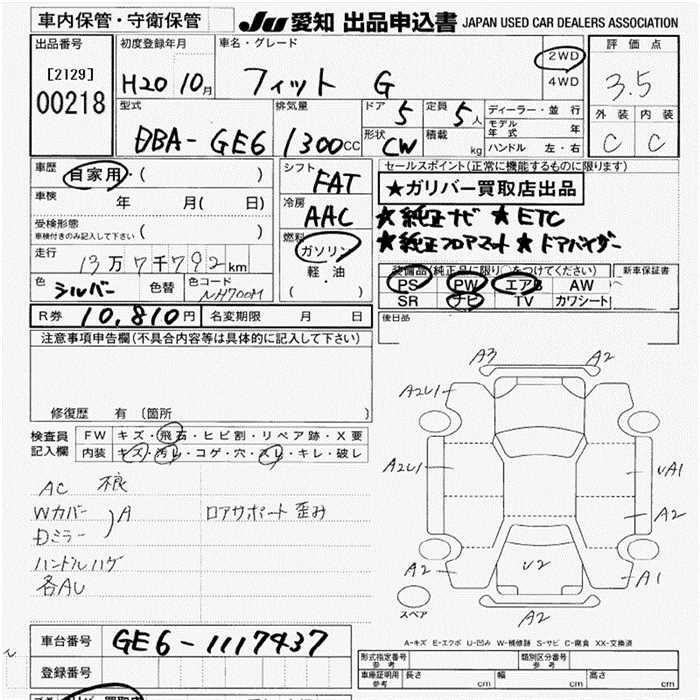 車内保管・守衛保管 JU 愛知 出品申込書 JAPAN USED CAR DEALERS ASSOCIATION
出品番号 初度登録年月 車名・グレード 評価点
[2129] 00218 H20 10月 フィット G 2WD 4WD 3.5
型式 排気量 ドア 定員 ディーラー・並行 外装 内装
DBA-GE6 1300cc 5 5人 モデル年式 年 C C
形状 CW 積載 kg ハンドル 左・右
車歴 自家用・( ) シフト FAT セールスポイント(正常に機能するものに限ります)
車検 年 月( 日) 冷房 AAC ★ガリバー買取店出品
受検形態 車検付きのみ記入して下さい ( ) ★純正ナビ ★ETC
走行 13万7千792km 燃料 ガソリン 軽・油 ( ) ★純正フロアマット ★ドアバイザー
色 シルバー 色替 色コード NH700M 装備品(純正品に限り○をつけてください) 新車保証書
PS PW エアB AW
SR ナビ TV カワシート
R券 10,810円 名変期限 月 日 後日品
注意事項申告欄(不具合内容等は具体的に記入して下さい)
修復歴 有 (箇所 )
検査員記入欄 FW キズ・飛石・ヒビ割・リペア跡・X要
内装 キズ・汚レ・コゲ・穴・スレ・キレ・破レ
AC 不良
Wカバー
Dミラー ) A ロアサポート歪み
ハンドルハゲ
各AU
A3 A2
A2U1
A2U1 UA1
A2
A2 U2 A1
スペア A2
A-キズ E-エクボ U-凹み W-補修跡 S-サビ C-腐食 XX-交換済
車台番号 GE6-1117437
登録番号
形式指定番号 参考 類別区分番号 参考
車庫証明用 参考 長さ cm 幅 cm 高さ cm